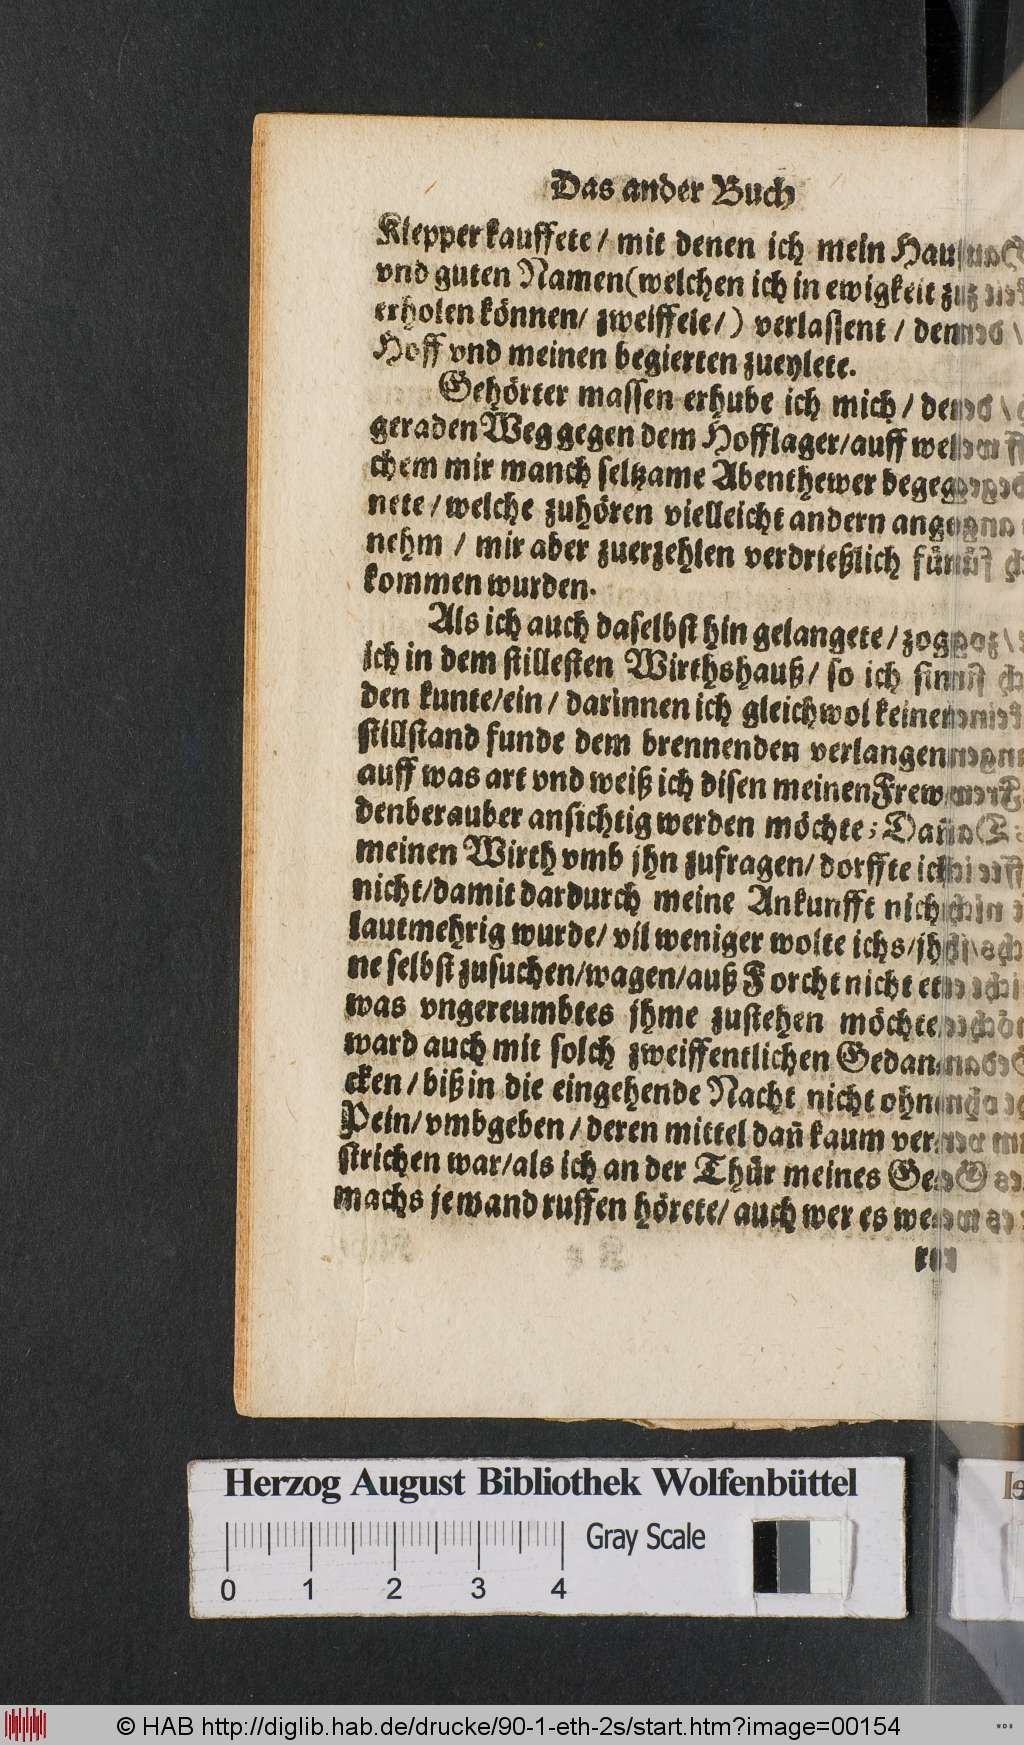 Das ander Buch
Klepper kauffete / mit denen ich mein Hauß
vnd guten Namen (welchen ich in ewigkeit zu
erholen können / zweiffele /) verlassent / dem
Hoff vnd meinen begierten zueylete.
Gehörter massen erhube ich mich / den
geraden Weg gegen dem Hofflager / auff wel
chem mir manch seltzame Abenthewer degeg
nete / welche zuhören vielleicht andern ange
nehm / mir aber zuerzehlen verdrießlich für
kommen wurden.
Als ich auch daselbst hin gelangete / zog
ich in dem stillesten Wirthshauß / so ich fin
den kunte / ein / darinnen ich gleichwol keinen
stillstand funde dem brennenden verlangen
auff was art vnd weiß ich disen meinen Frew
denberauber ansichtig werden möchte; Dañ
meinen Wirth vmb jhn zufragen / dorffte ich
nicht / damit dardurch meine Ankunfft nicht
lautmehrig wurde / vil weniger wolte ichs / jh
ne selbst zusuchen / wagen / auß Forcht nicht et
was vngereumbtes jhme zustehen möchte
ward auch mit solch zweiffentlichen Gedan
cken / biß in die eingehende Nacht nicht ohn
Pein / vmbgeben / deren mittel dañ kaum ver
strichen war / als ich an der Thür meines Ge
machs jemand ruffen hörete / auch wer es we
rer
Herzog August Bibliothek Wolfenbüttel
Gray Scale
0 1 2 3 4
© HAB http://diglib.hab.de/drucke/90-1-eth-2s/start.htm?image=00154